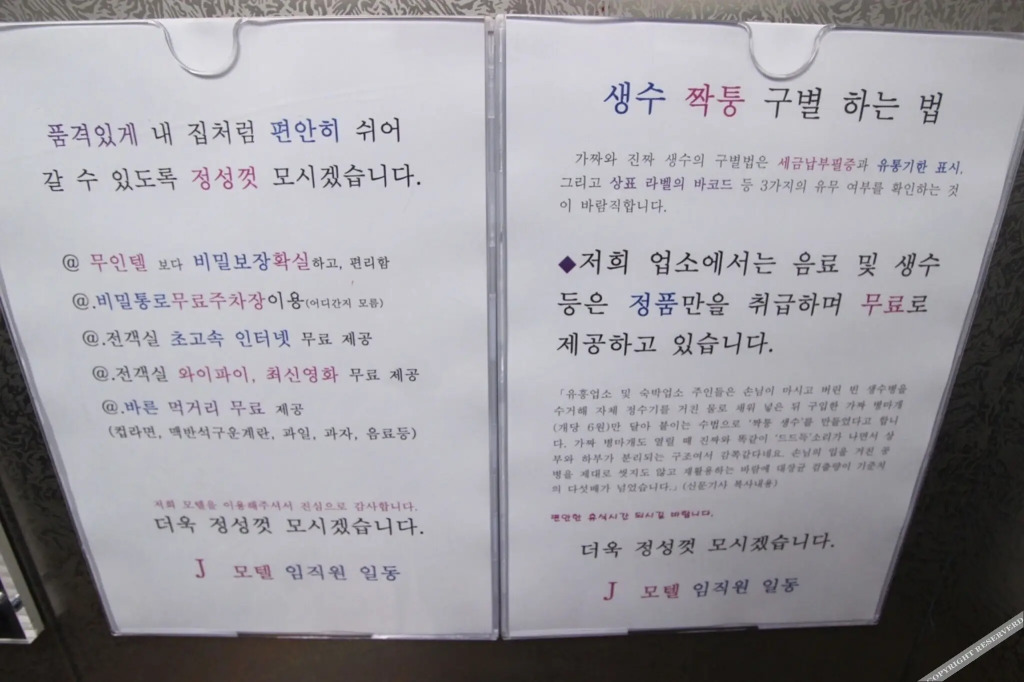 품격있게 내 집처럼 편안히 쉬어
갈 수 있도록 정성껏 모시겠습니다.
@ 무인텔 보다 비밀보장확실하고, 편리함
@.비밀통로무료주차장이용(어디간지 모름)
@.전객실 초고속 인터넷 무료 제공
@.전객실 와이파이, 최신영화 무료 제공
@.바른 먹거리 무료 제공
(컵라면, 맥반석구운계란, 과일, 과자, 음료등)
저희 모텔을 이용해주셔서 진심으로 감사합니다.
더욱 정성껏 모시겠습니다.
J 모텔 임직원 일동
생수 짝퉁 구별 하는 법
가짜와 진짜 생수의 구별법은 세금납부필증과 유통기한 표시,
그리고 상표 라벨의 바코드 등 3가지의 유무 여부를 확인하는 것
이 바람직합니다.
◆저희 업소에서는 음료 및 생수
등은 정품만을 취급하며 무료로
제공하고 있습니다.
「유흥업소 및 숙박업소 주인들은 손님이 마시고 버린 빈 생수병을
수거해 자체 정수기를 거진 물로 새워 넣은 뒤 구입한 가짜 병마개
(개당 6원)만 달아 붙이는 수법으로 '짝퉁 생수'를 만들었다고 합니
다. 가짜 병마개도 열릴 때 진짜와 똑같이 '드드득'소리가 나면서 상
부와 하부가 분리되는 구조여서 감쪽같다네요. 손님의 입을 거친 공
병을 제대로 씻지도 않고 재활용하는 바람에 대장균 검출량이 기준치
의 다섯배가 넘었습니다.」(신문기사 복사내용)
편안한 휴식시간 되시길 바랍니다.
더욱 정성껏 모시겠습니다.
J 모텔 임직원 일동
COPYRIGHT RESERVED